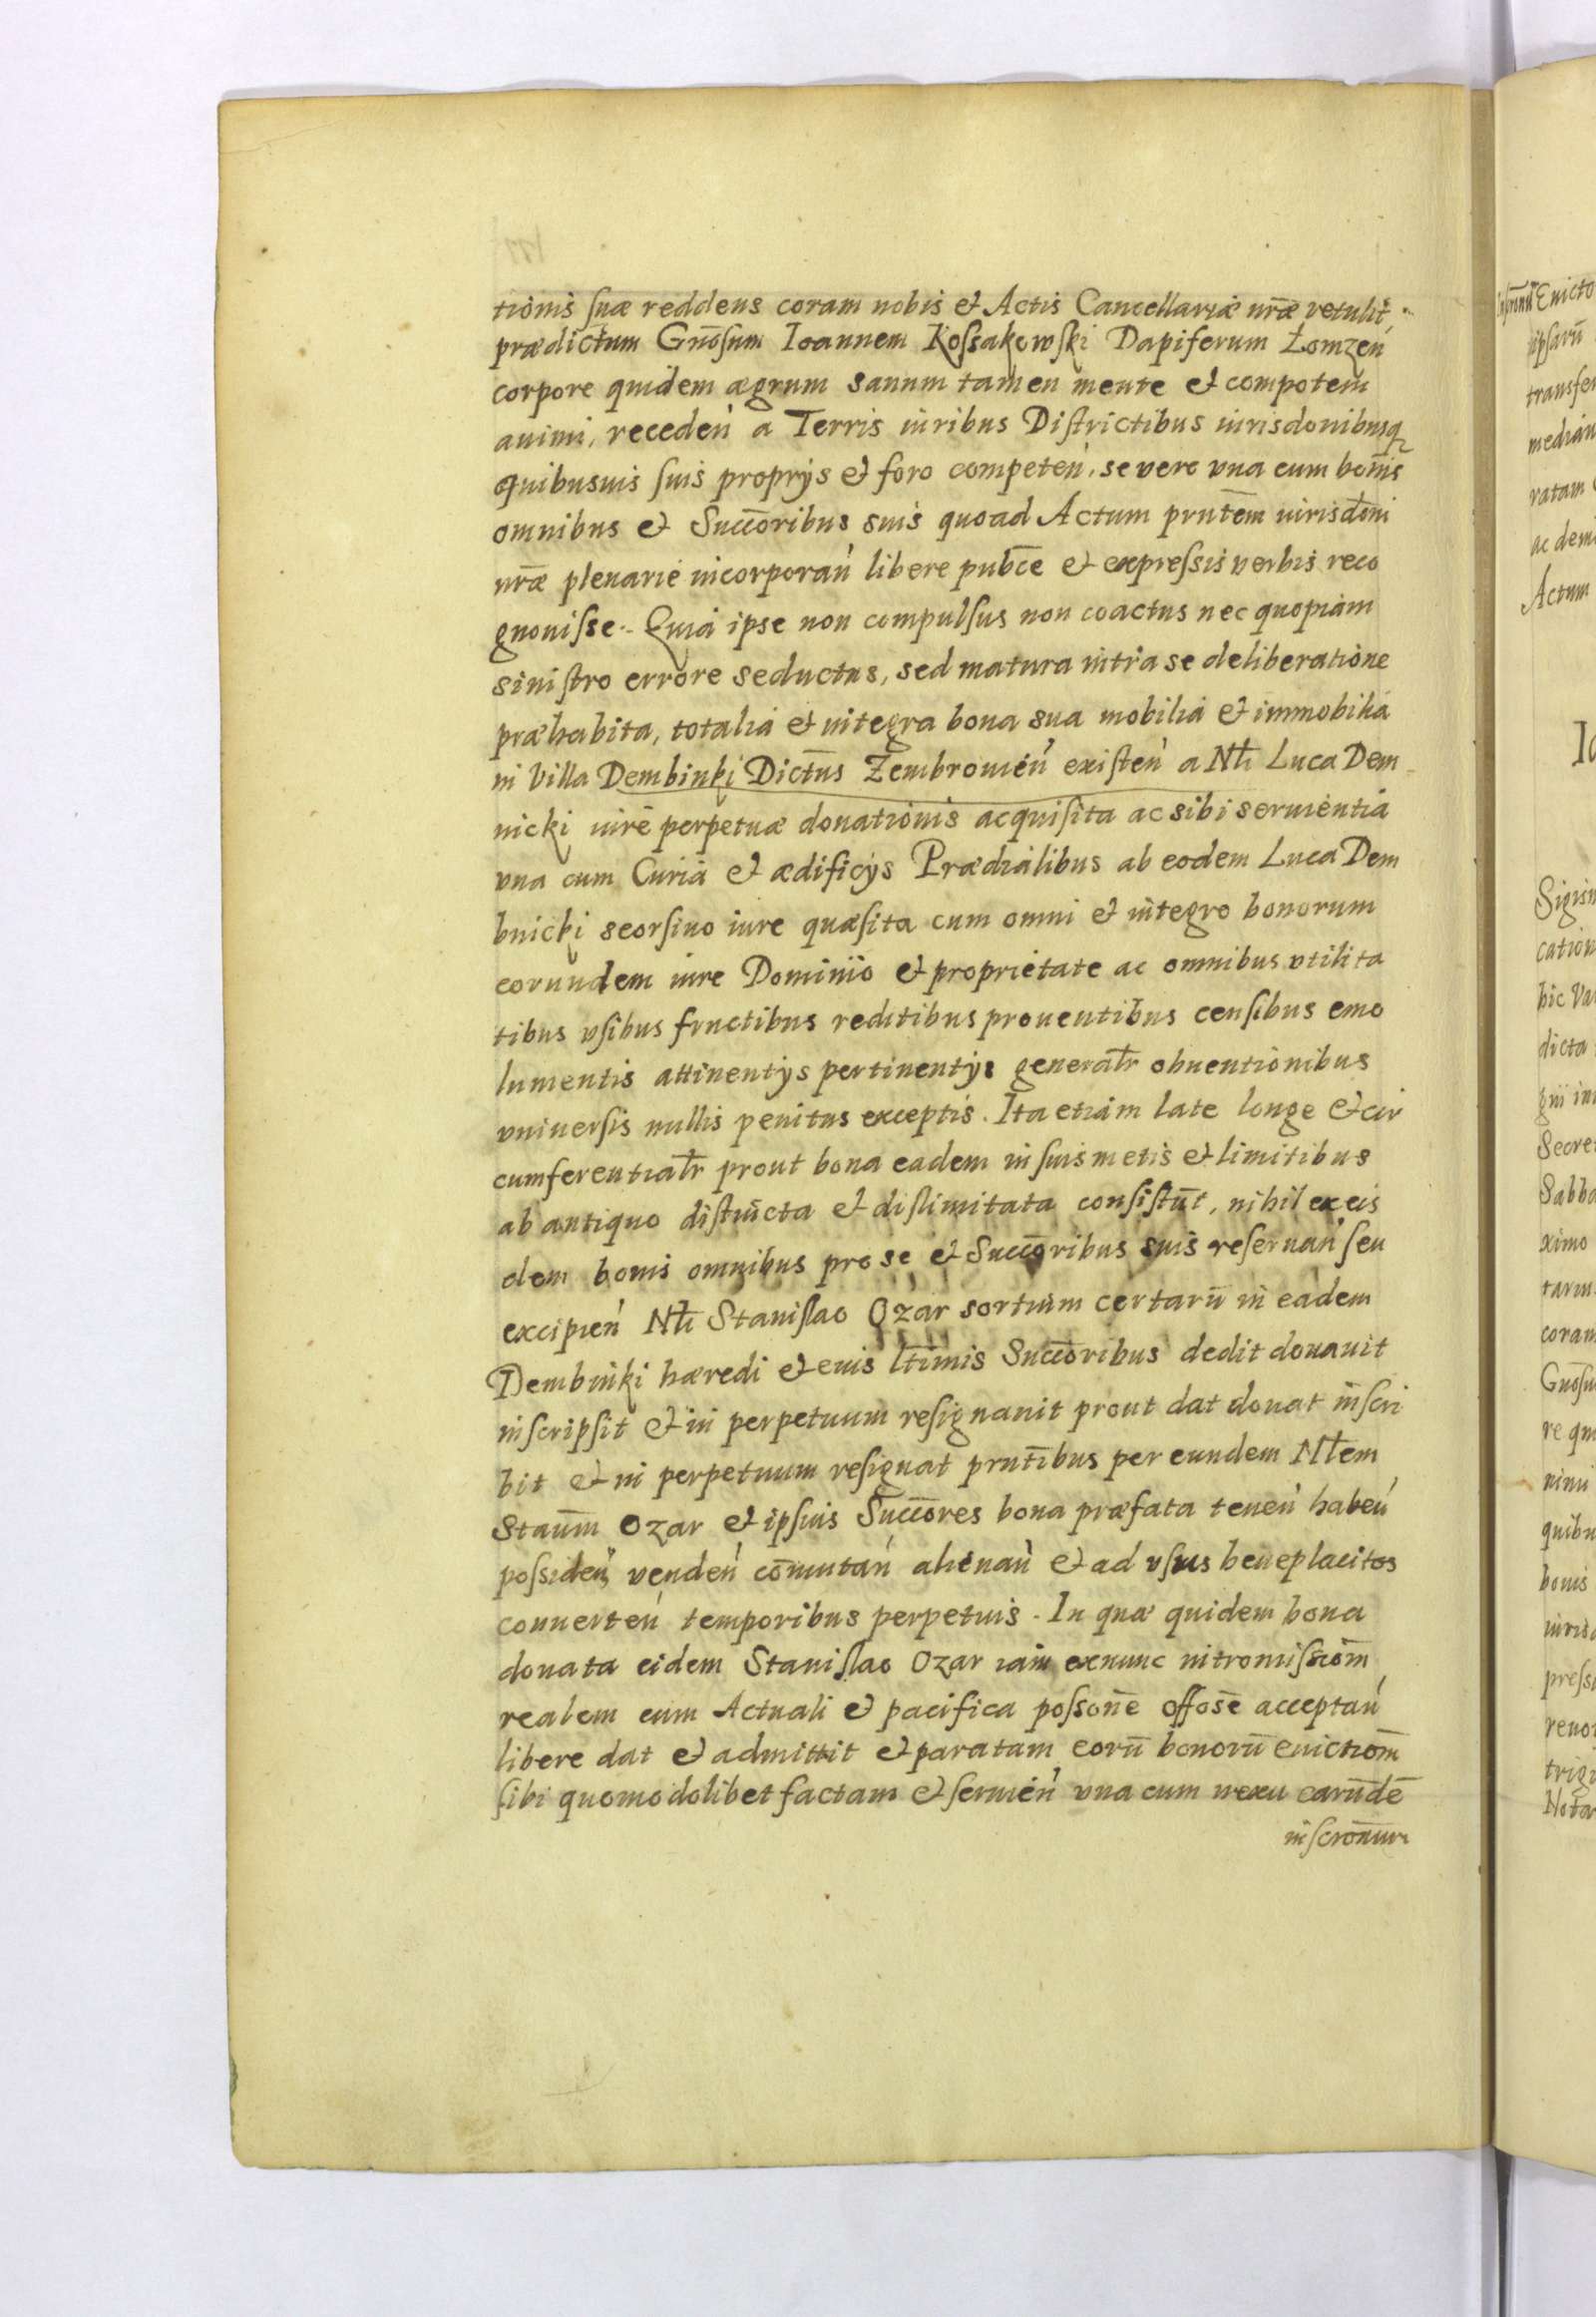 tionis suæ reddens coram nobis et Actis Cancellariæ nr̄æ retulit
prædictum Gn̄osum Ioannem Kossakowski Dapiferum Łomzeń
corpore quidem ægrum sanum tamen mente et compotem
animi, recedeń a Terris iuribus Districtibus iurisdonibusq
quibusuis suis proprijs et foro competeń, se vero vna cum bonis
omnibus et Succ̄oribus suis quoad Actum prn̄tem iurisdōni
nr̄æ plenarie incorporań libere pub̄ce et expressis verbis reco
gnouisse. Quia ipse non compulsus non coactus nec quopiam
sinistro errore seductus, sed matura intra se deliberatione
præhabita, totalia et integra bona sua mobilia et immobilia
in Villa Dembinki Dict̄us Zembrouień existeń a Nłi Luca Dem
nicki iure perpetuæ donationis acquisita ac sibi seruientia
vna cum Curia et ædificijs Prædialibus ab eodem Luca Dem
bnicki seorsiuo iure quæsita cum omni et integro bonorum
eorundem iure Dominio et proprietate ac omnibus vtilita
tibus vsibus fructibus reditibus prouentibus censibus emo
lumentis attinentijs pertinentijs generałr obuentionibus
vniuersis nullis penitus exceptis. Ita etiam late longe et cir
cumferentiałr prout bona eadem in suis metis et limitibus
ab antiquo distincta et dislimitata consistūt, nihil ex eis
dem bonis omnibus pro se et Succ̄oribus suis reseruań seu
excipień Nłi Stanislao Ozar sortium certarū in eadem
Dembinki hæredi et eius łtimis Succ̄oribus dedit donauit
inscripsit et in perpetuum resignauit prout dat donat inscri
bit et in perpetuum resignat prn̄tibus per eundem Nłem
Staūm Ozar et ipsius Succ̄ores bona præfata teneń habeń
possideń vendeń com̄utań alienań et ad vsus beneplacitos
conuerteń temporibus perpetuis. In quæ quidem bona
donata eidem Stanislao Ozar iam exnunc intromissiōm
realem cum Actuali et pacifica possōne offōse acceptań
libere dat et admittit et paratam eorū bonorū euictiōm
sibi quomodolibet factam et seruień vna cum nexu earūdē
inscronum